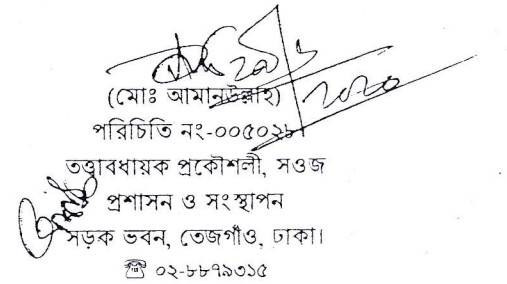 (মোঃ আমানউল্লাহ)
পরিচিতি নং-০০৫০২৮।
তত্ত্বাবধায়ক প্রকৌশলী, সওজ
প্রশাসন ও সংস্থাপন
সড়ক ভবন, তেজগাঁও, ঢাকা।
☎ ০২-৮৮৭৯৩১৫